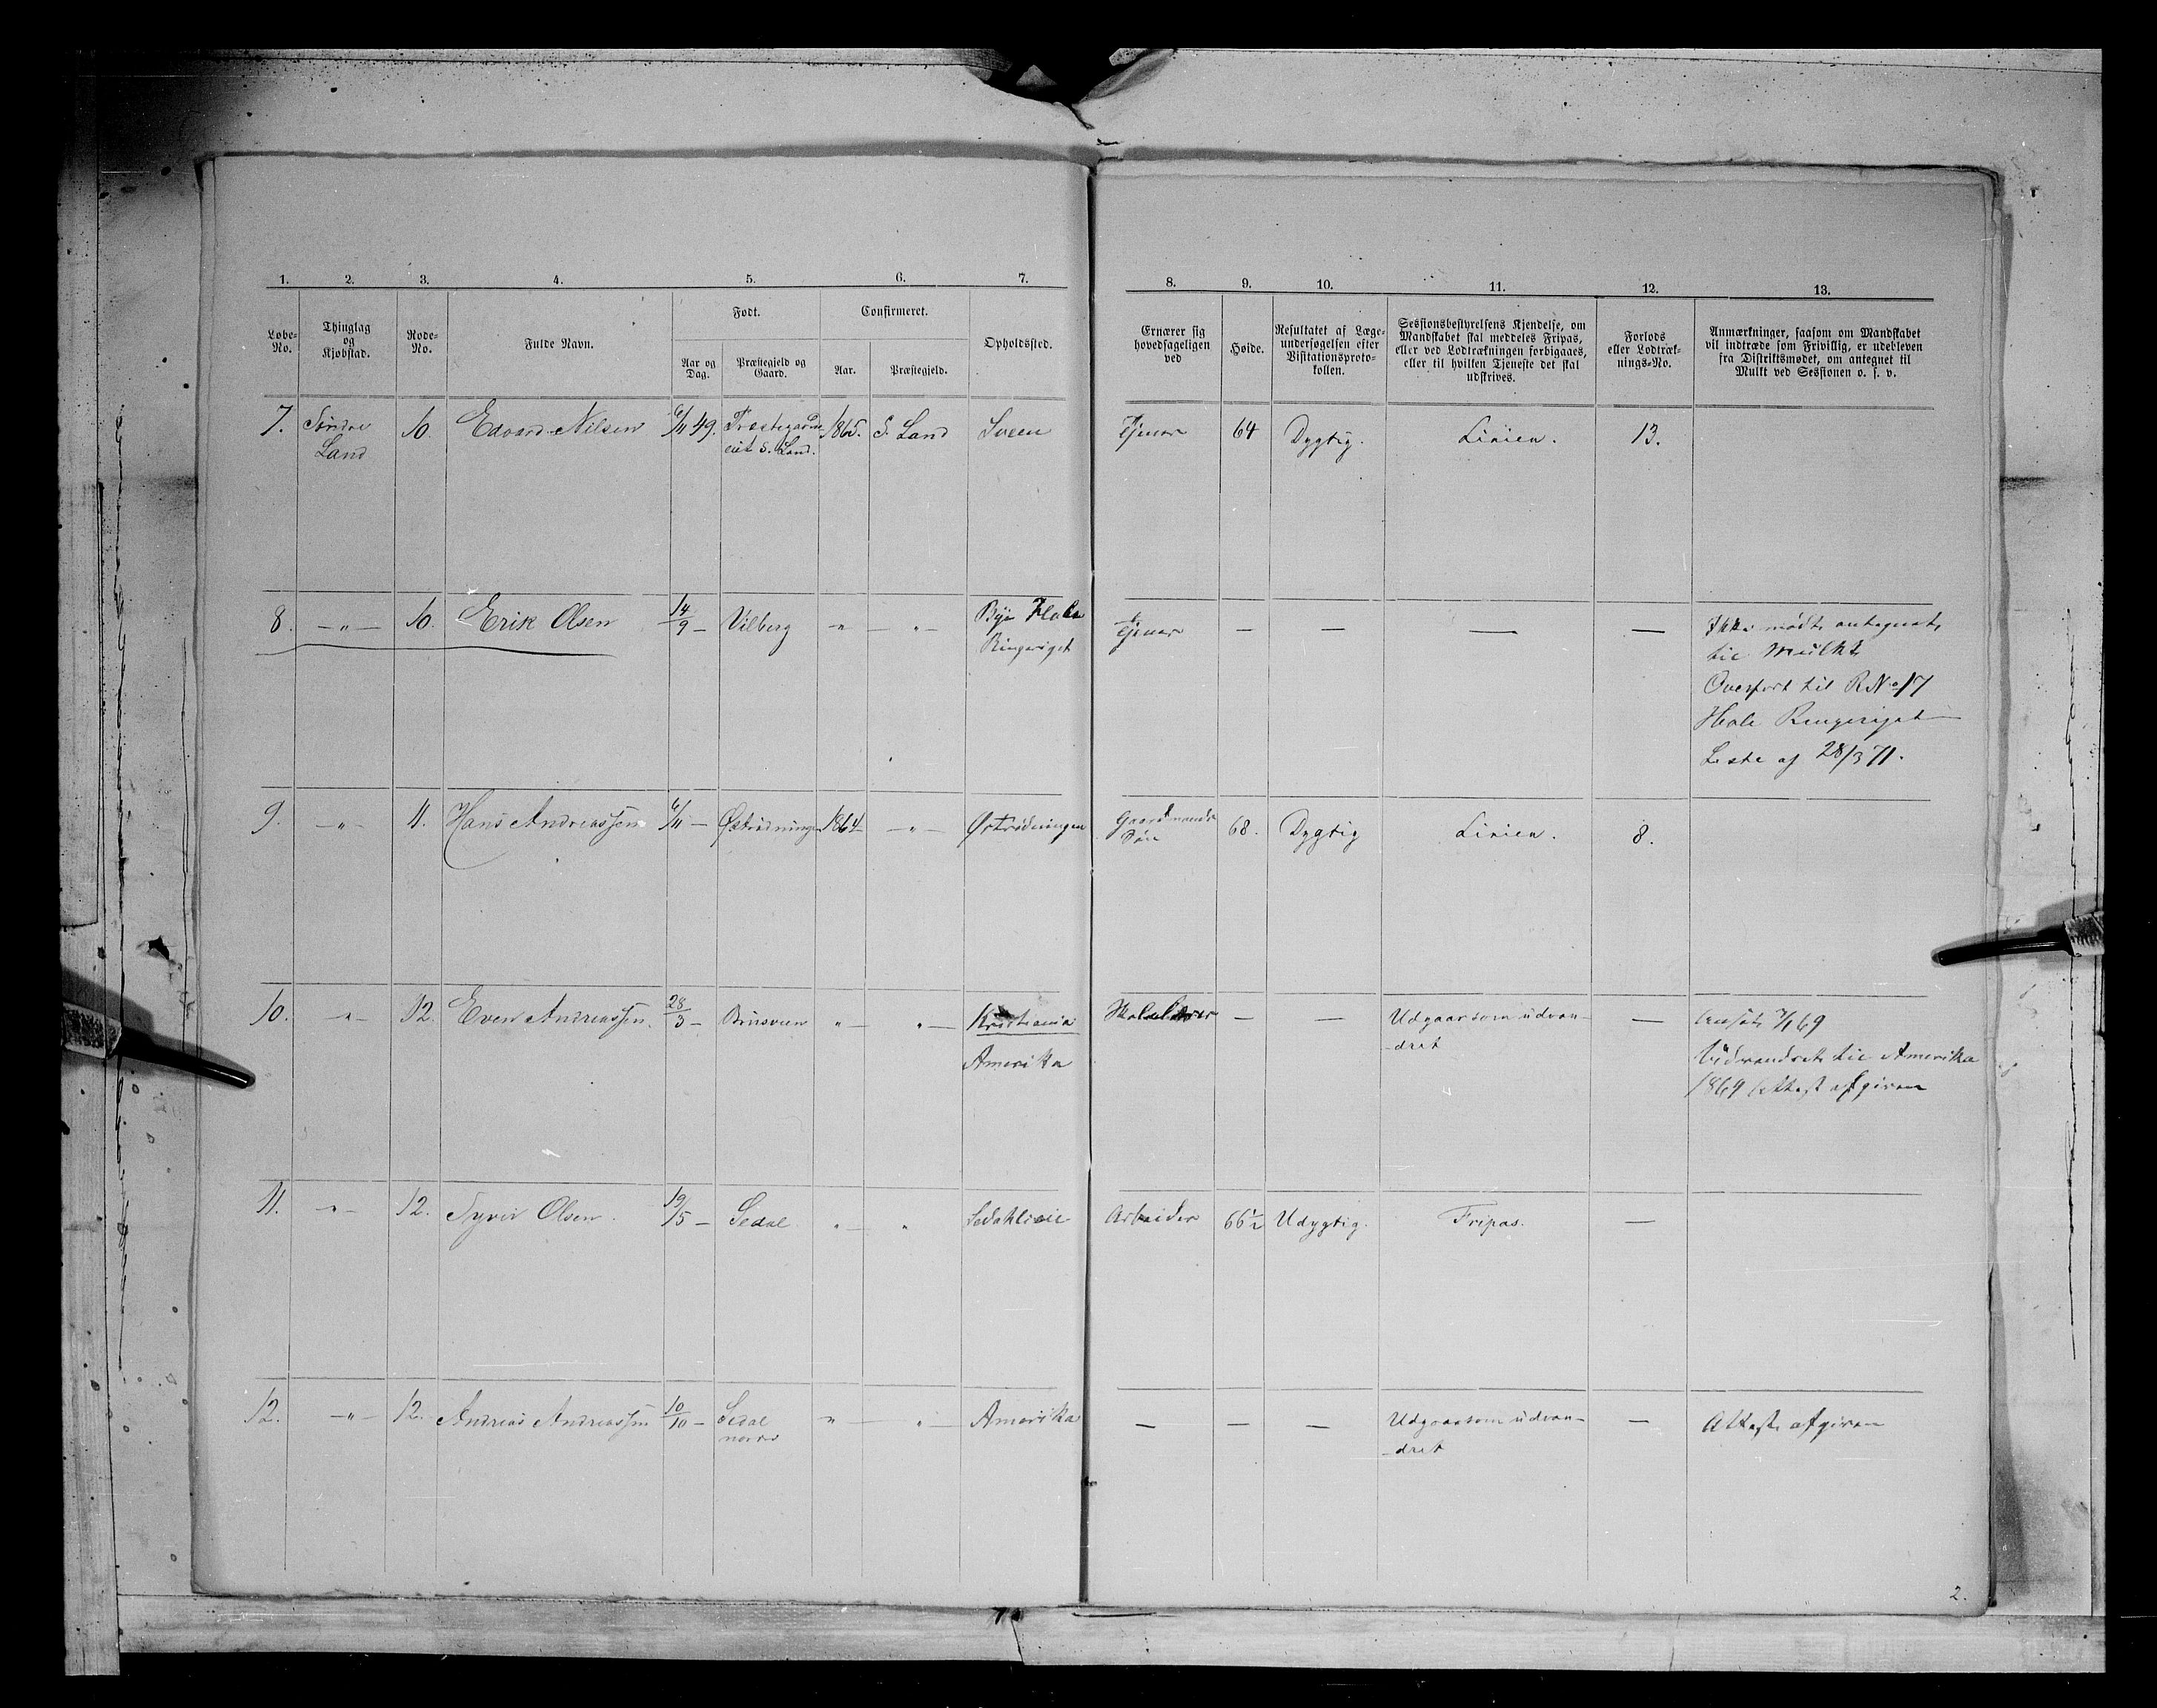 1. 2. 3. 4. 5. 6. 7. 8. 9. 10. 11. 12. 13.
Løbe-No.
Thinglag og Kjøbstad.
Rode-No.
Fulde Navn.
Født.
Aar og Dag.
Præstegjeld og Gaard.
Confirmeret.
Aar.
Præstegjeld.
Opholdssted.
Ernærer sig hovedsageligen ved
Høide.
Resultatet af Læge-undersøgelsen efter Visitationsproto-kollen.
Sessionsbestyrelsens Kjendelse, om Mandskabet skal meddeles Fripas, eller ved Lodtrækningen forbigaaes, eller til hvilken Tjeneste det skal udskrives.
Forlods eller Lodtræk-nings-No.
Anmærkninger, saasom om Mandskabet vil indtræde som Frivillig, er udebleven fra Distriktsmødet, om antegnet til Mulkt ved Sessionen o. s. v.
7. Søndre Land 10. Edvard Nilsen 6/11 49. S. Land. 1865. S. Land Sveen Tjener 64 Dygtig. Linien. 13.
8. —"— 10. Erik Olsen 14/9 — Vilberg —"— —"— Hole Ringeriget Tjener — — — — Ikke mødt antegnet
til Mulkt
Overført til R No 17
Hole Ringeriget
Liste af 28/3 71.
9. —"— 11. Hans Andreassen 6/11 — Østrødningen 1864 —"— Østrødningen Gaardmands Søn 68. Dygtig Linien. 8.
10. —"— 12. Even Andreassen. 28/3 — "— "— Kristiania
Amerika Skolelærer — — Udgaar som udvan-
-dret —
Udvandret til Amerika
1869 Attest afgiven
11. "— 12. Syver Olsen. 19/5 — Sedal "— " Arbeider 66½ Udygtig. Fripas. —
12. —"— 12. Andreas Andreassen 10/10 — Sedal
nordre "— "— Amerika — — — Udgaar som udvan-
-dret — Attest afgiven
2.